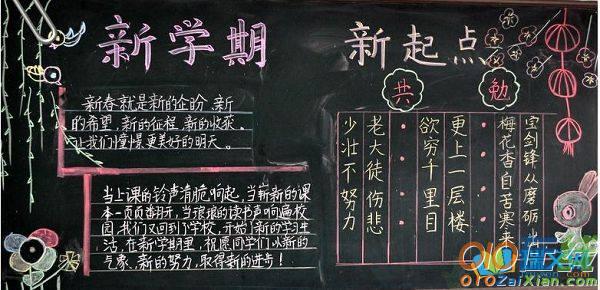 新学期 新起点
新春就是新的企盼 新
的希望 新的征程 新的收获。
让我们憧憬更美好的明天。
当上课的铃声清脆响起,当崭新的课
本一页页翻开,当琅琅的读书声响遍校
园,我们又回到学校,开始了新的学习生
活,在新学期里,祝愿同学们以新的
气象、新的努力,取得新的进步!
共勉
少壮不努力
老大徒伤悲
欲穷千里目
更上一层楼
梅花香自苦寒来
宝剑锋从磨砺出
OroZaiXian.com